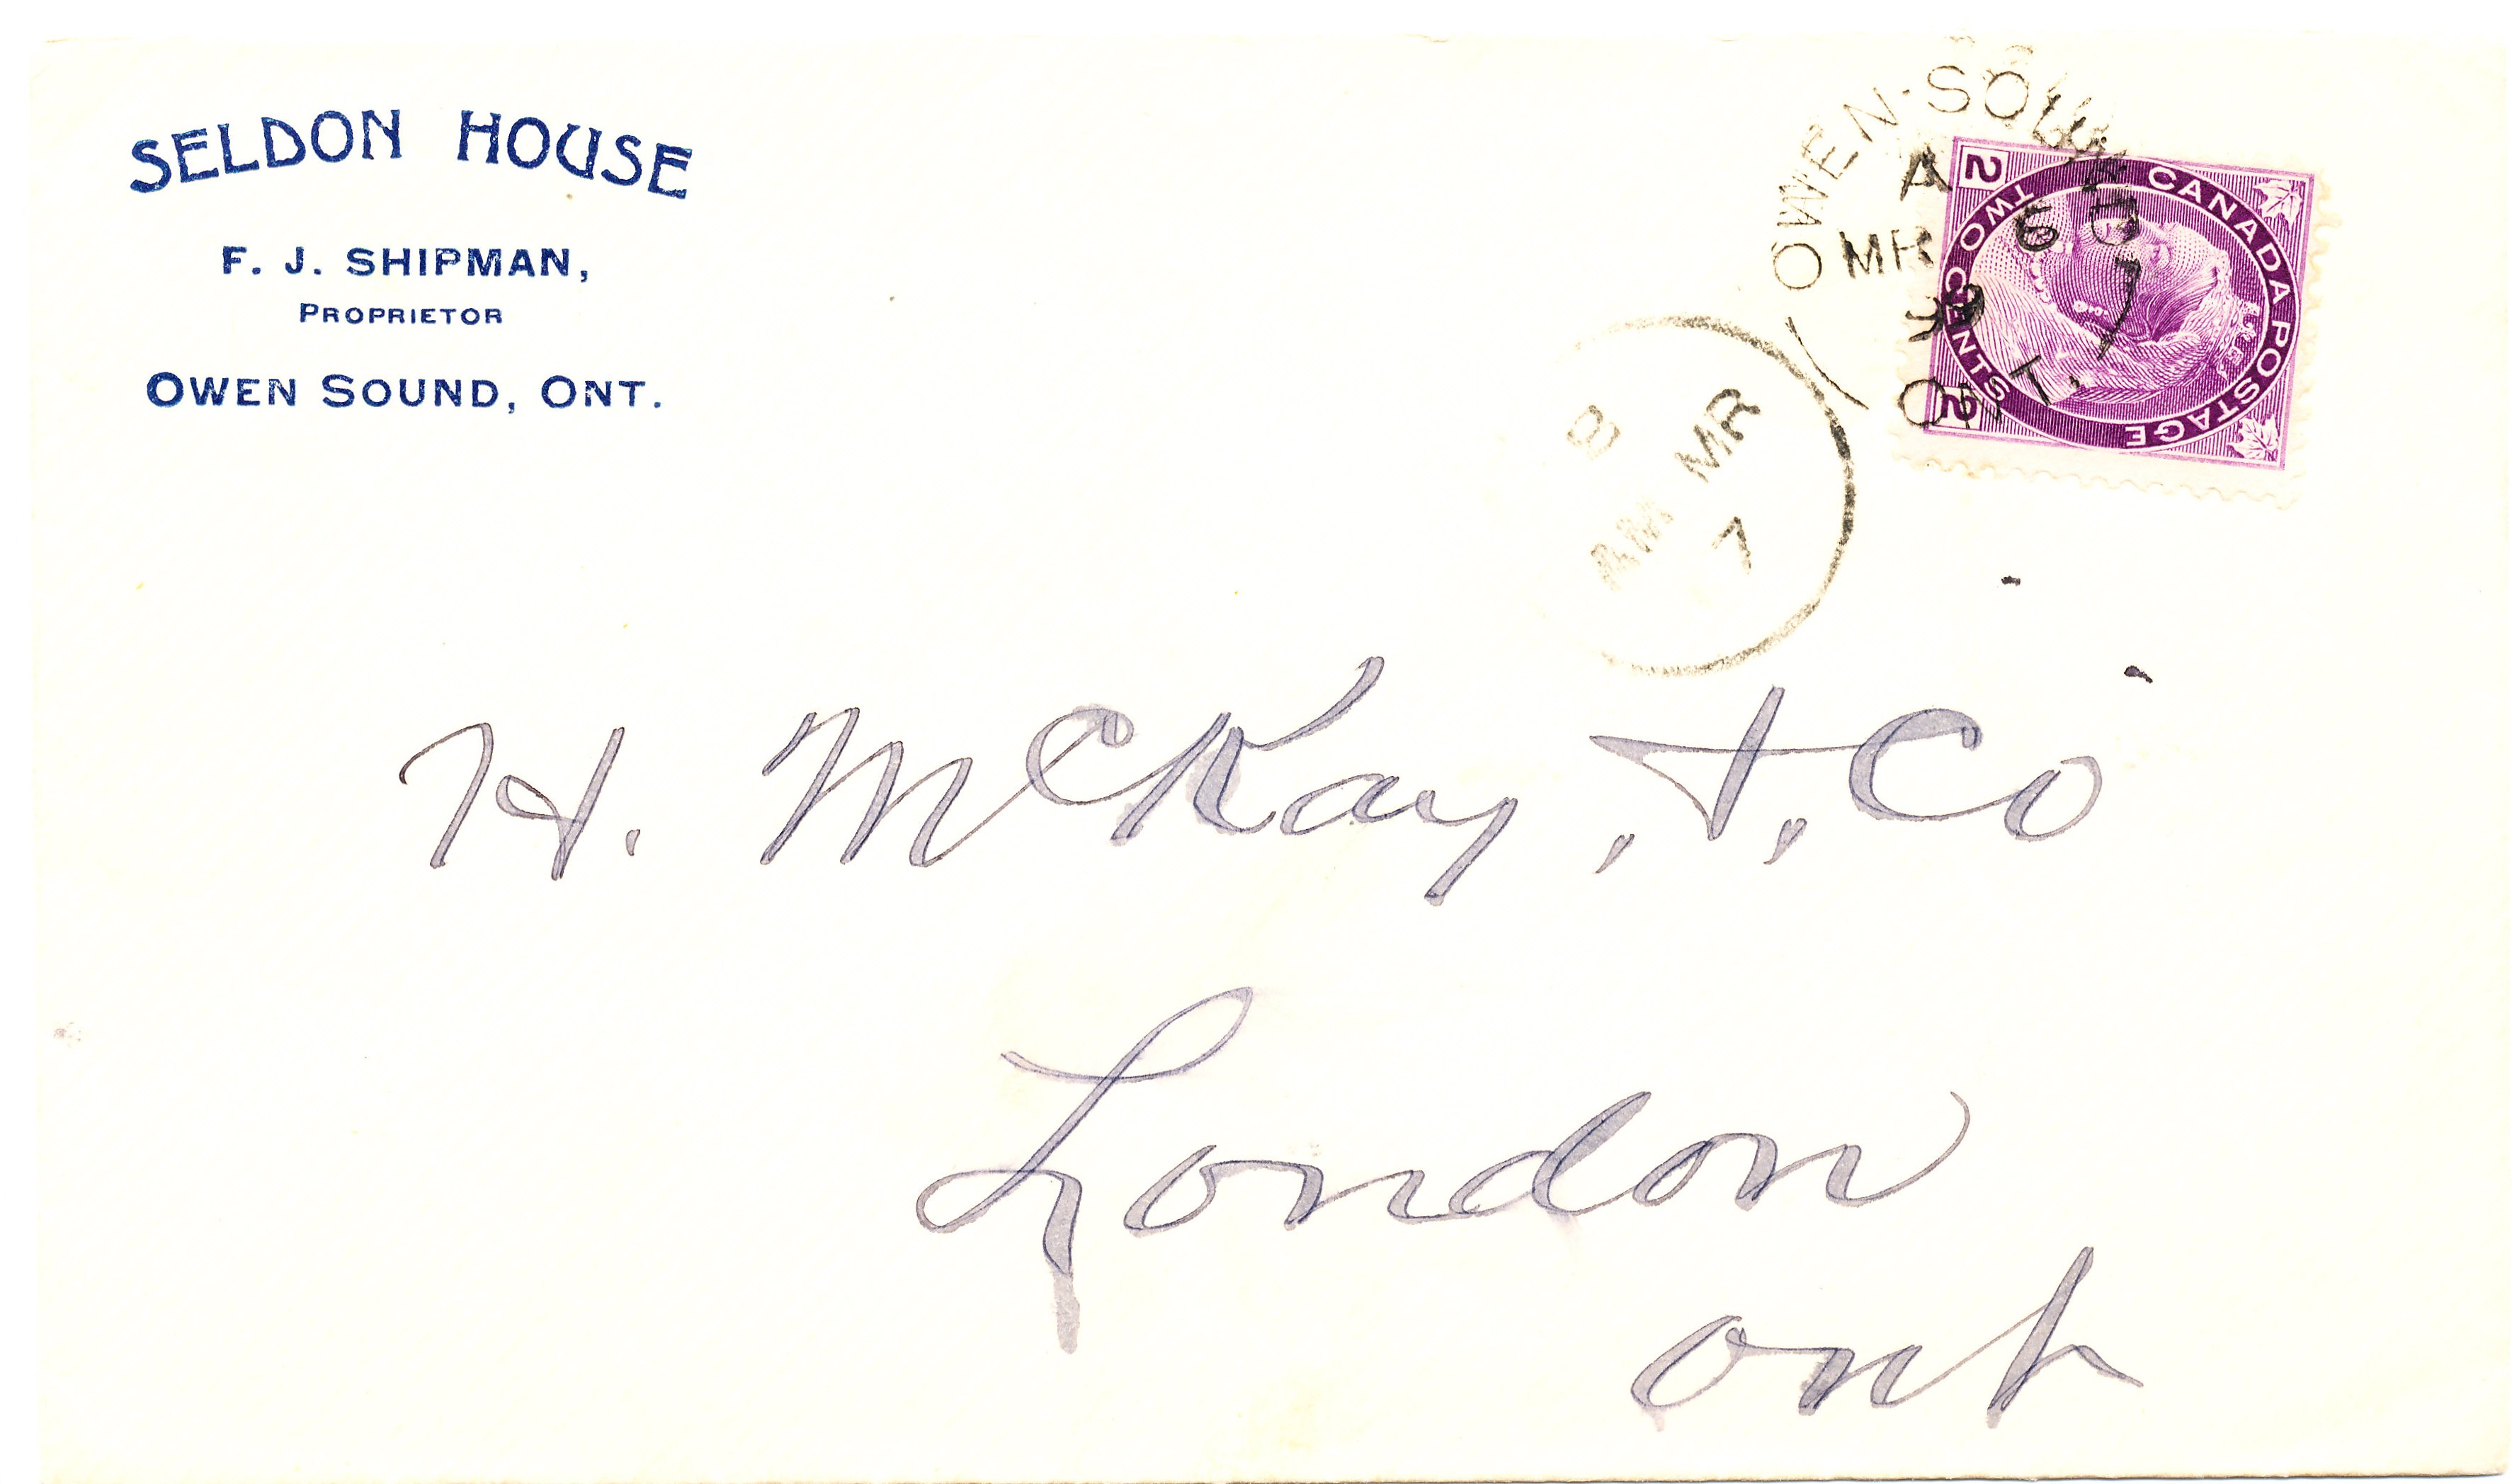 SELDON HOUSE
F. J. SHIPMAN,
PROPRIETOR
OWEN SOUND, ONT.
OWEN·SOUND
A
MR 6
99
ONT.
2
2
CANADA POSTAGE
TWO CENTS
AM
MR
7
H. McKay, & Co
London
Ont